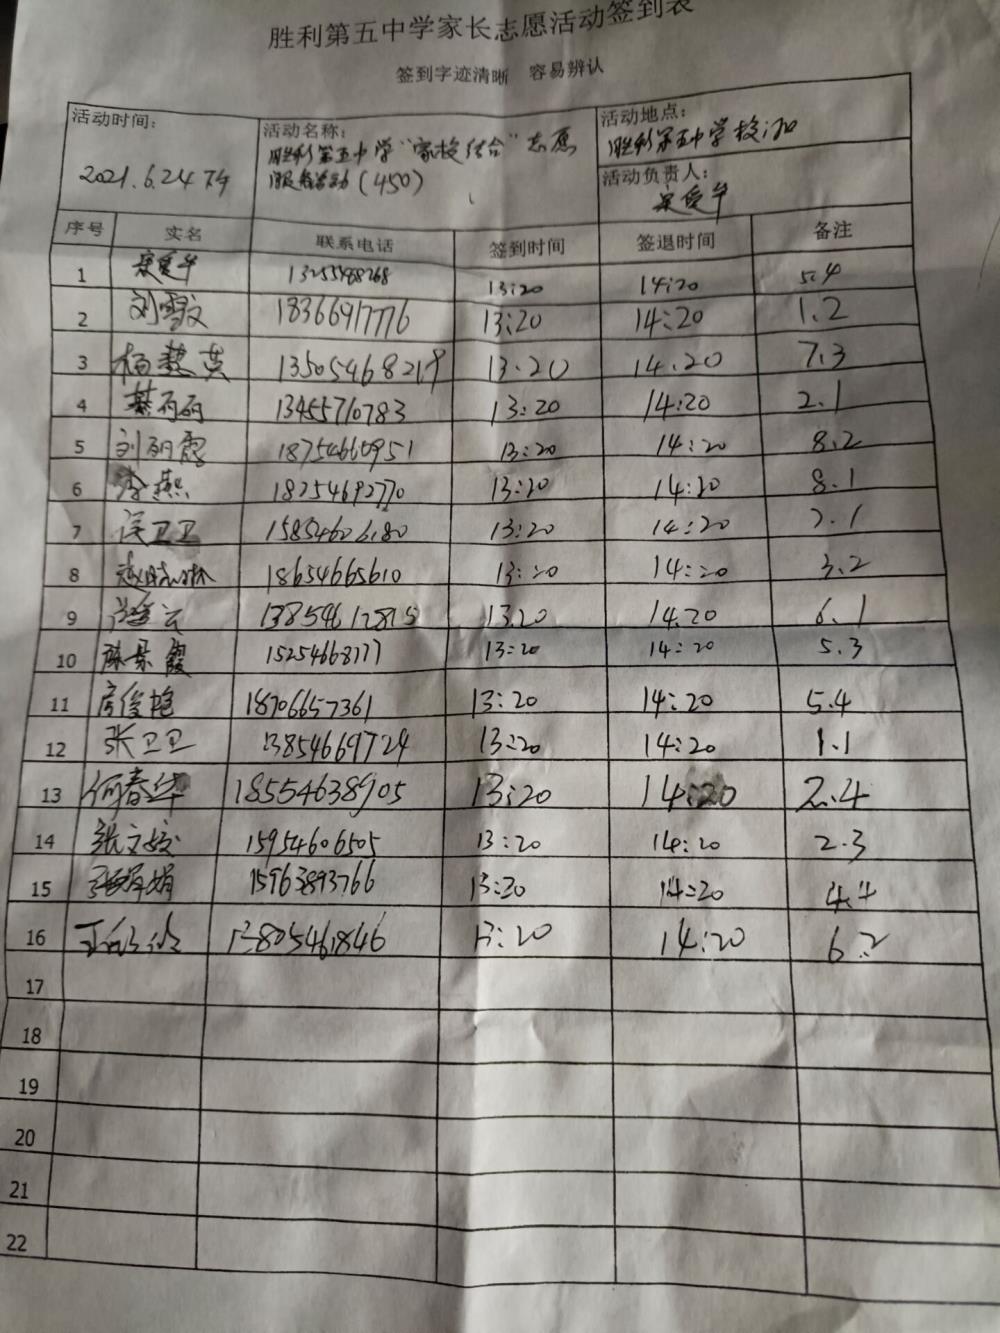 胜利第五中学家长志愿活动签到表
签到字迹清晰 容易辨认
活动时间：
2021.6.24下午
活动名称：
胜利第五中学“家校结合”志愿
服务活动(450)
活动地点：
胜利第五中学校门口
活动负责人：
序号 实名 联系电话 签到时间 签退时间 备注
1 13:20 14:20 5.4
2 刘雪文 18366917776 13:20 14:20 1.2
3 杨慧英 13505468219 13.20 14.20 7.3
4 13455710783 13:20 14:20 2.1
5 刘丽霞 18754660951 13:20 14:20 8.2
6 李燕 18254692770 13:20 14:20 8.1
7 卫卫 15854606180 13:20 14:20
8 18654665610 13:20 14:20 3.2
9 13854612815 13.20 14.20 6.1
10 陈景霞 15254668177 13:20 14:20 5.3
11 房俊艳 18706657361 13:20 14:20 5.4
12 张卫卫 13854669724 13:20 14:20 1.1
13 何春华 18554638905 13:20 14:20 2.4
14 张文姣 15954606505 13:20 14:20 2.3
15 张娟娟 15963893766 13:20 14:20 4.4
16 13805461846 13:20 14:20 6.2
17
18
19
20
21
22